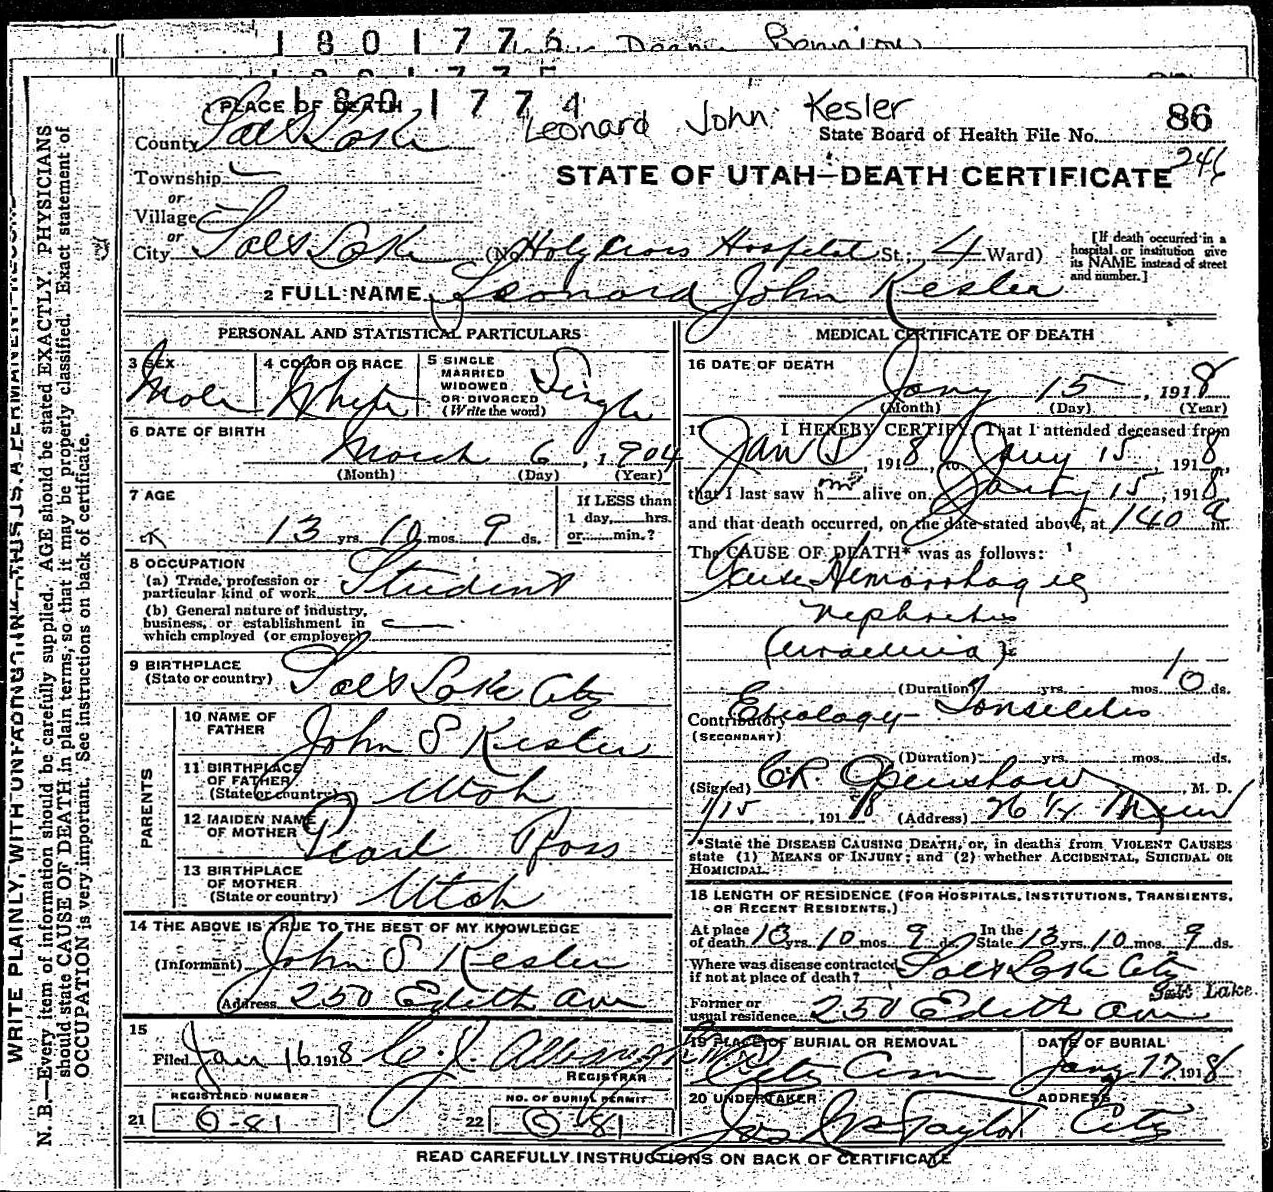 1801776 Bennion
1801774
Leonard John Kesler
86
State Board of Health File No.
246
STATE OF UTAH—DEATH CERTIFICATE
1 PLACE OF DEATH
County Salt Lake
Township
or
Village
or
City Salt Lake (No. Holy Cross Hospital St.; 4 Ward)
[If death occurred in a hospital or institution give its NAME instead of street and number.]
2 FULL NAME Leonard John Kesler
PERSONAL AND STATISTICAL PARTICULARS
3 SEX Male
4 COLOR OR RACE White
5 SINGLE MARRIED WIDOWED OR DIVORCED (Write the word) Single
6 DATE OF BIRTH
March 6, 1904
(Month) (Day) (Year)
7 AGE
13 yrs. 10 mos. 9 ds.
If LESS than 1 day, hrs. or min.?
8 OCCUPATION
(a) Trade, profession or particular kind of work Student
(b) General nature of industry, business, or establishment in which employed (or employer)
9 BIRTHPLACE (State or country) Salt Lake City
PARENTS
10 NAME OF FATHER John S Kesler
11 BIRTHPLACE OF FATHER (State or country) Utah
12 MAIDEN NAME OF MOTHER Pearl Ross
13 BIRTHPLACE OF MOTHER (State or country) Utah
14 THE ABOVE IS TRUE TO THE BEST OF MY KNOWLEDGE
(Informant) John S Kesler
Address 250 Edith Ave
15
Filed Jan 16 1918
REGISTRAR
REGISTERED NUMBER
21 0-81
NO. OF BURIAL PERMIT
22 0-81
MEDICAL CERTIFICATE OF DEATH
16 DATE OF DEATH
Jany 15, 1918
(Month) (Day) (Year)
17 I HEREBY CERTIFY, That I attended deceased from
Jan 5, 1918, to Jany 15, 1918,
that I last saw him alive on Jany 15, 1918
and that death occurred, on the date stated above, at 140 a m.
The CAUSE OF DEATH* was as follows:
Hemorrhagic
Nephritis
(uraemia)
(Duration) yrs. mos. 10 ds.
Contributory Etiology - Tonselitis
(SECONDARY)
(Duration) yrs. mos. ds.
(Signed) C.R. Openshaw, M. D.
1/15, 1918 (Address) 76 Main
*State the DISEASE CAUSING DEATH, or, in deaths from VIOLENT CAUSES state (1) MEANS OF INJURY; and (2) whether ACCIDENTAL, SUICIDAL OR HOMICIDAL.
18 LENGTH OF RESIDENCE (FOR HOSPITALS, INSTITUTIONS, TRANSIENTS, OR RECENT RESIDENTS.)
At place of death 13 yrs. 10 mos. 9 ds. In the State 13 yrs. 10 mos. 9 ds.
Where was disease contracted if not at place of death? Salt Lake City
Former or usual residence 250 Edith Ave Salt Lake
19 PLACE OF BURIAL OR REMOVAL
City Cem
DATE OF BURIAL
Jany 17 1918
20 UNDERTAKER
Jos Wm Taylor
ADDRESS
City
READ CAREFULLY INSTRUCTIONS ON BACK OF CERTIFICATE
WRITE PLAINLY, WITH UNFADING INK—THIS IS A PERMANENT RECORD
N. B.—Every item of information should be carefully supplied. AGE should be stated EXACTLY. PHYSICIANS
should state CAUSE OF DEATH in plain terms, so that it may be properly classified. Exact statement of
OCCUPATION is very important. See instructions on back of certificate.